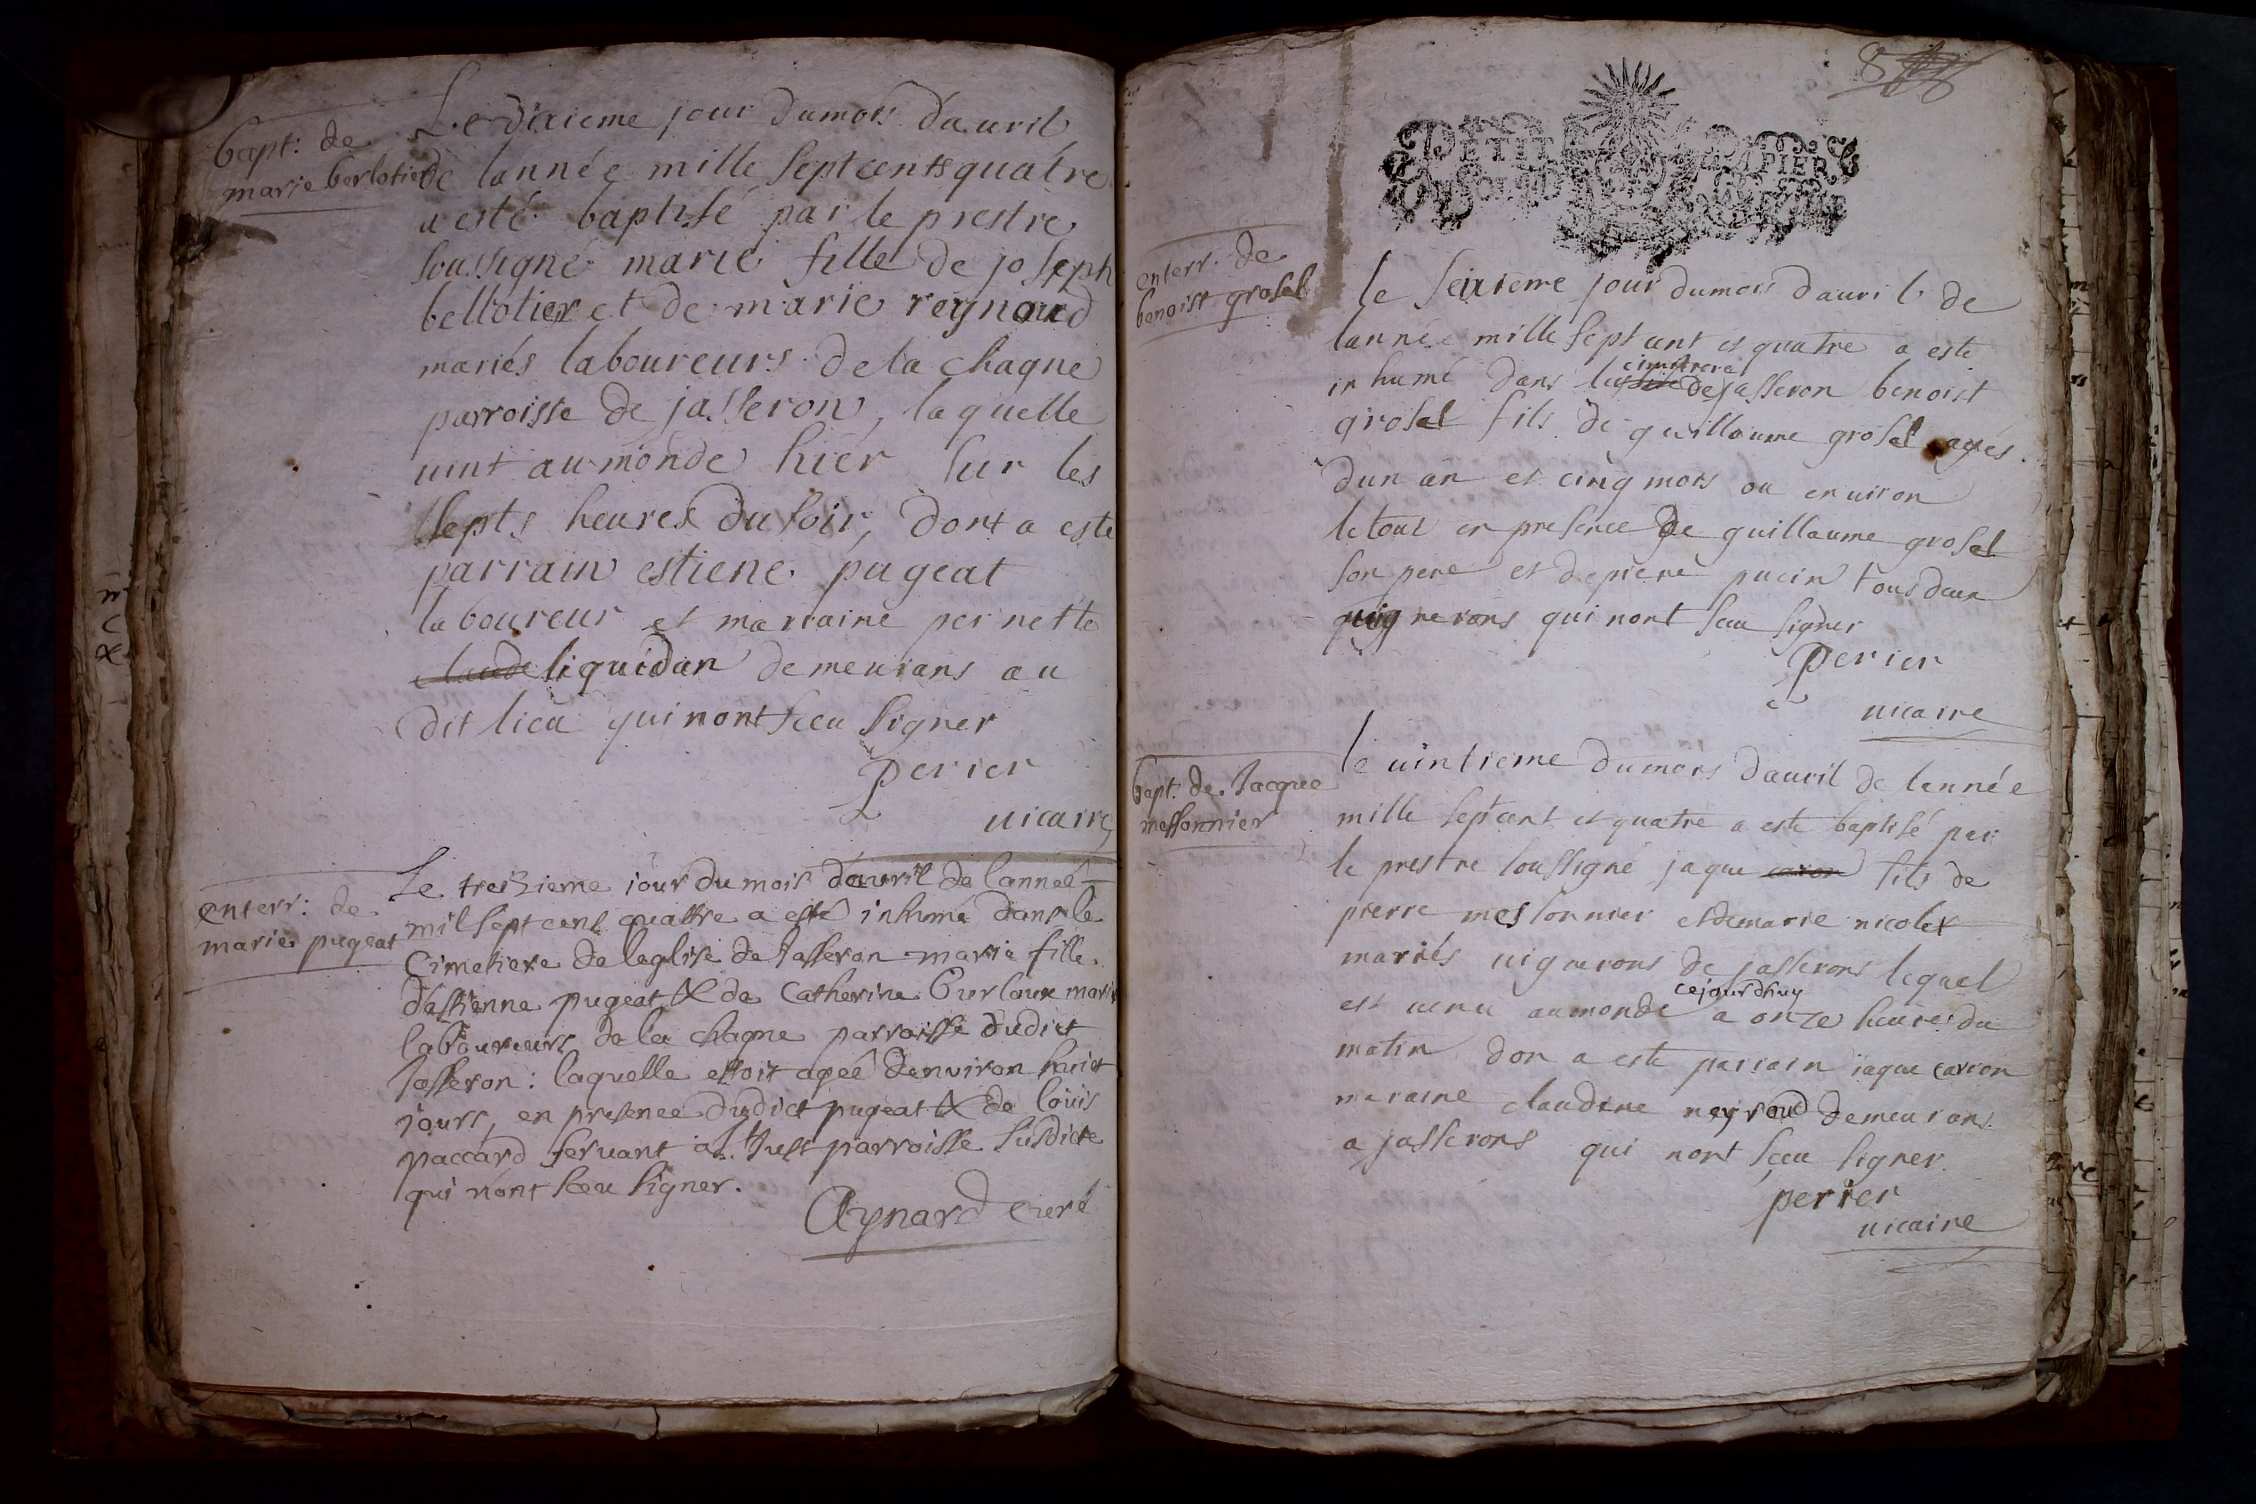 bapt: de
marie berlotier
Le dixieme jour du mois dauril
de lannée mille sept cents quatre
a esté baptisé par le prestre
soussigné marie fille de joseph
bellotier et de marie reynaud
mariés laboureurs de la chagne
parroisse de jasseron, laquelle
uint au monde hier sur les
septs heures du soir, dont a esté
parrain estiene pugeat
laboureur et marraine pernette
claude liquidan demeurans au
dit lieu qui nont sceu signer
perier
uicaire
enterr: de
marie pugeat
Le treizieme jour du mois dauril de lannee
mil sept cent quattre a esté inhumé dans le
Cimetiere de leglise de Jasseron marie fille
d'estienne pugeat & de Catherine Burlaux mariés
laboureurs de la chagne parroisse dudict
Jasseron: laquelle estoit agée denuiron huict
jours, en presence dudict pugeat & de loüis
paccard seruant a Just parroisse susdicte
qui n'ont sceu signer.
Aynard curé
8
PETIT PAPIER
enterr. de
benoist grosel
le seixieme jour du mois dauril de
lannée mille sept cent et quatre a esté
inhumé dans le cimitiere de jasseron benoist
grosel fils de guillaume grosel agés
dun an et cinq mois ou enuiron
le tout en presence de guillaume grosel
son pere et de piere pucin tous deux
uignerons qui nont sceu signer
perier
uicaire
bapt. de Jacque
messonnier
le uintieme du mois dauril de lennée
mille sept cent et quatre a esté baptisé par
le prestre soussigné jaque caron fils de
pierre messonnier et de marie nicolet
mariés uignerons de jasserons lequel
cejourdhuy
est uenu au monde a onze heures du
matin don a esté parrain jaque carron
maraine claudine neyroud demeurans
a jasserons qui nont sceu signer
perier
uicaire